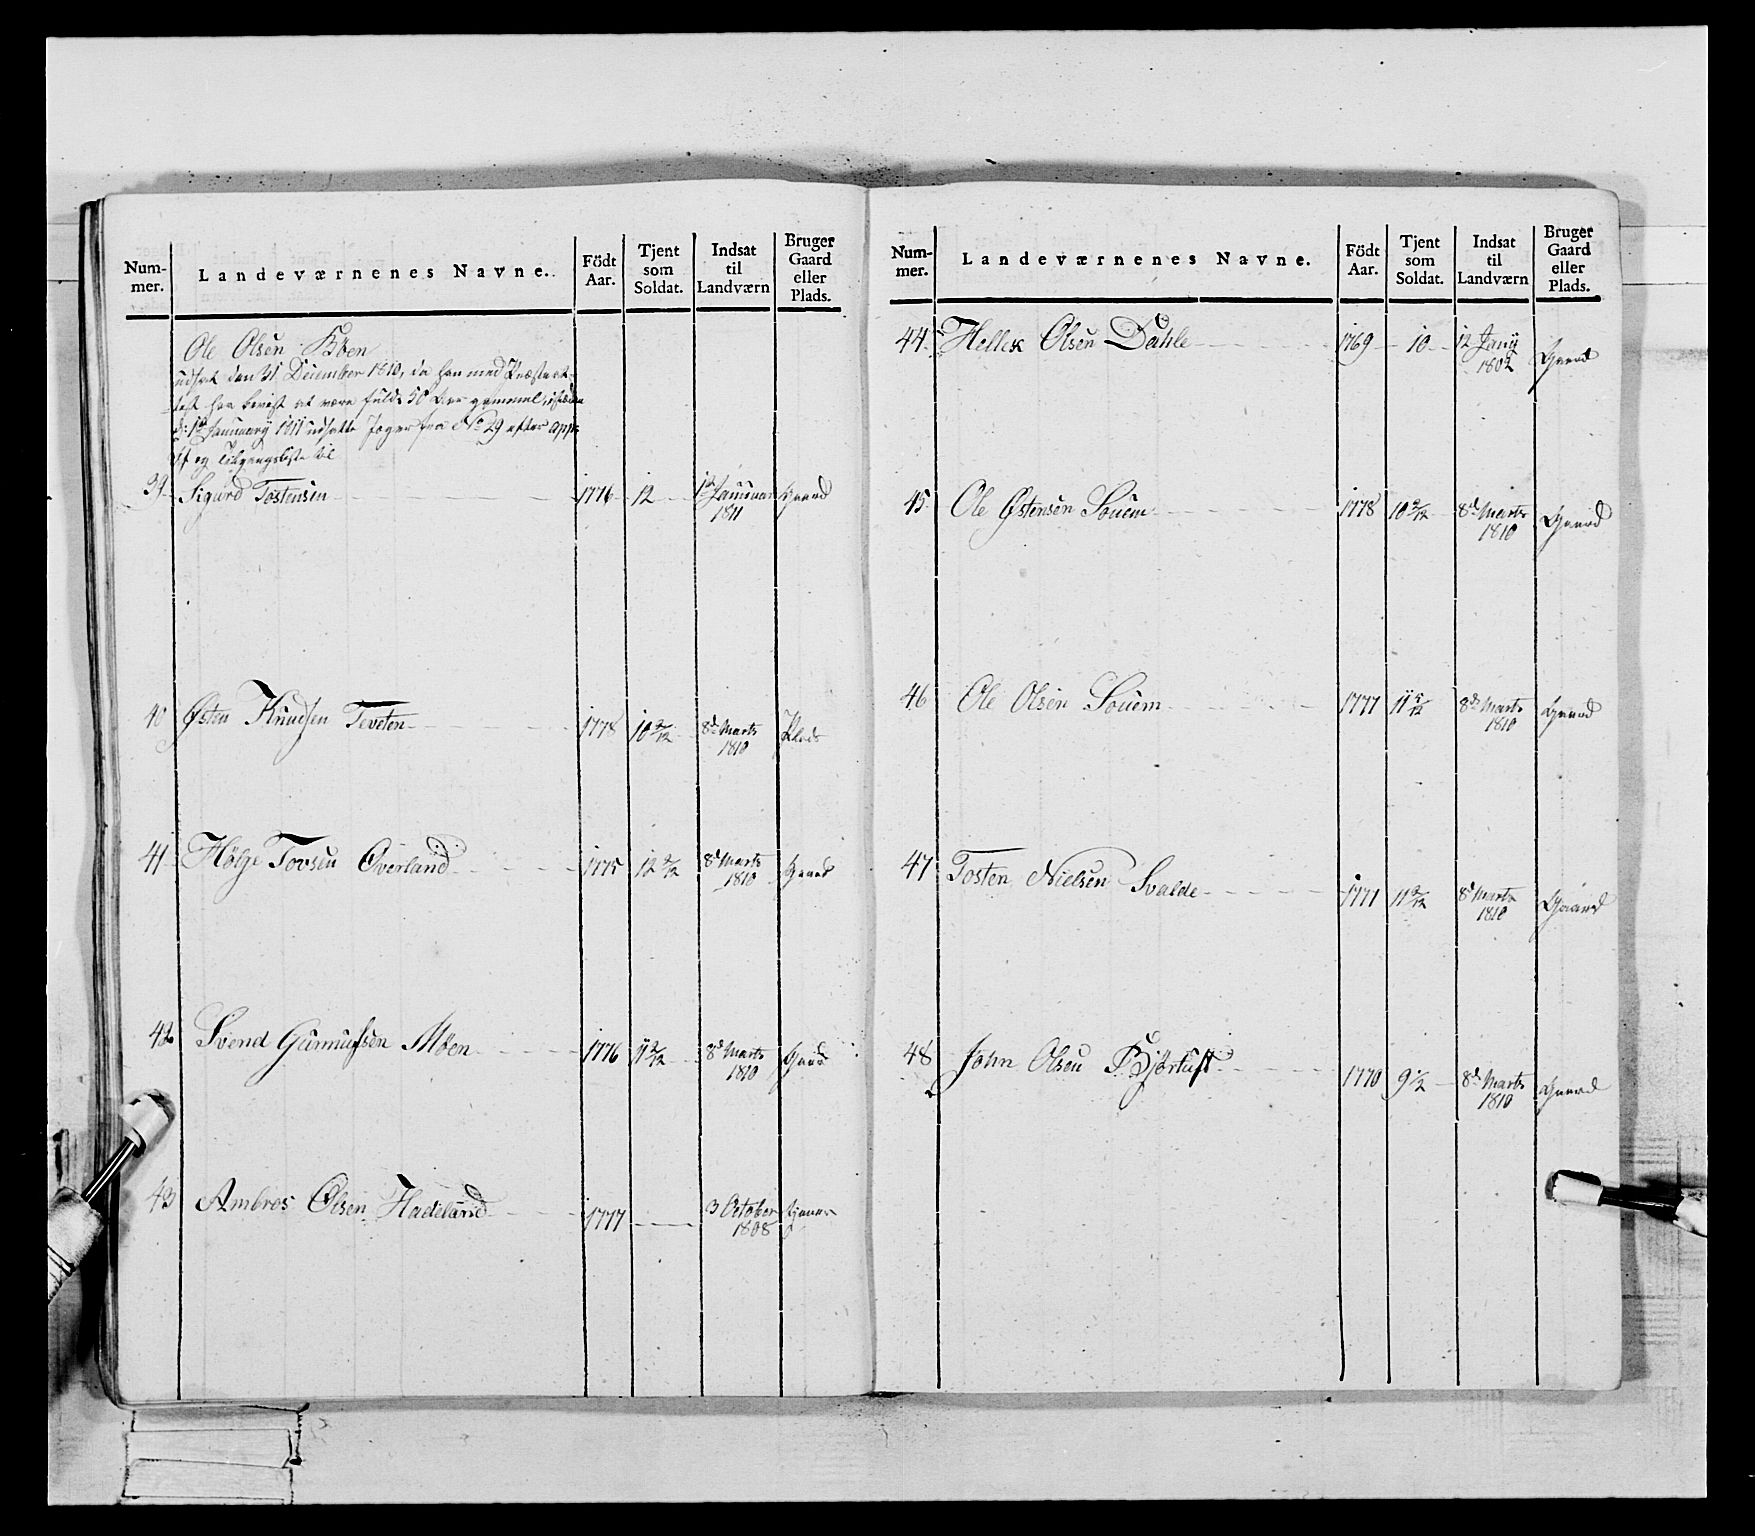 Num-mer. Landeværnenes Navne. Födt Aar. Tjent som Soldat. Indsat til Landværn Bruger Gaard eller Plads.
Ole Olsen Böen
udsat den 31 December 1810, da han med Præsteat-
test har bevist at være fulde 50 Aar gammel, istæden
d: 1ste Januarÿ 1811 udsatte Jæger fra No 29 efter
og Tilgangsliste til
39 Sigurd Tostensen 1776 12 1ste Januar 1811 Gaard
40 Østen Knudsen Teveten 1778 10 2/12 8de Marts 1810 Plads
41 Hölge Tovsen Overland 1775 12 2/12 8de Marts 1810 Gaard
42 Svend Gunnufsen Möen 1776 11 2/12 8de Marts 1810 Gaard
43 Ambros Olsen Hadeland 1777 3 October 1808
Num-mer. Landeværnenes Navne. Födt Aar. Tjent som Soldat. Indsat til Landværn Bruger Gaard eller Plads.
44 Hellek Olsen Dahle 1769 10 12 Janÿ 1802 Gaard
45 Ole Østensen Souem 1778 10 2/12 8de Marts 1810 Gaard
46 Ole Olsen Souem 1777 11 5/12 8de Marts 1810 Gaard
47 Tosten Nielsen Svalde 1771 11 2/12 8de Marts 1810 Gaard
48 John Olsen Bjørtuft 1770 9 1/2 8de Marts 1810 Gaard